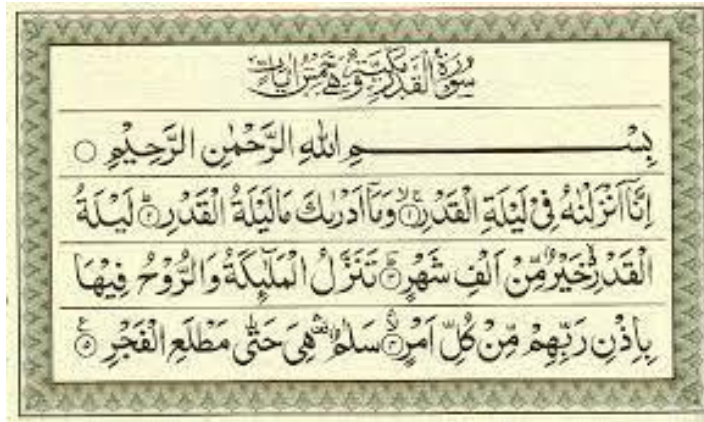 سُوْرَةُ الْقَدْرِ مَكِّيَّةٌ وَّهِيَ خَمْسُ اٰيَاتٍ
بِسْمِ اللّٰهِ الرَّحْمٰنِ الرَّحِيْمِ ○
اِنَّاۤ اَنْزَلْنٰهُ فِيْ لَيْلَةِ الْقَدْرِ ۚۖ ۝۱ وَمَاۤ اَدْرٰىكَ مَا لَيْلَةُ الْقَدْرِ ؕ ۝۲ لَيْلَةُ
الْقَدْرِ ۙ۬ خَيْرٌ مِّنْ اَلْفِ شَهْرٍ ؕ ۝۳ تَنَزَّلُ الْمَلٰٓئِكَةُ وَالرُّوْحُ فِيْهَا
بِاِذْنِ رَبِّهِمْ مِّنْ كُلِّ اَمْرٍ ۙۛ ۝۴ سَلٰمٌ ۛ۫ هِيَ حَتّٰى مَطْلَعِ الْفَجْرِ ۝۵